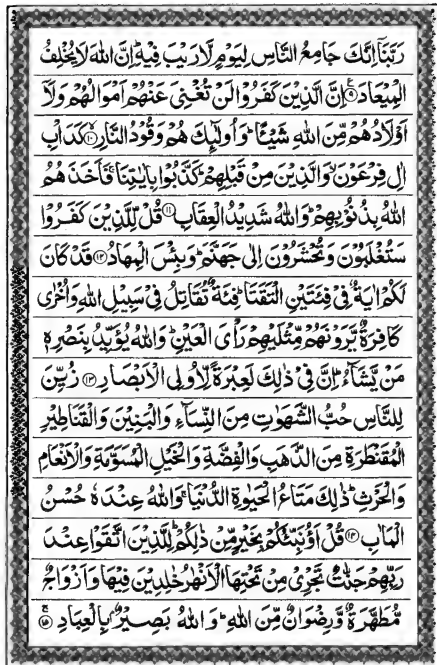 رَبَّنَآ اِنَّكَ جَامِعُ النَّاسِ لِيَوْمٍ لَّا رَيْبَ فِيْهِ ؕ اِنَّ اللّٰهَ لَا يُخْلِفُ
الْمِيْعَادَ ﴿۹﴾ اِنَّ الَّذِيْنَ كَفَرُوْا لَنْ تُغْنِيَ عَنْهُمْ اَمْوَالُهُمْ وَلَآ
اَوْلَادُهُمْ مِّنَ اللّٰهِ شَيْـًٔا ؕ وَاُولٰٓئِكَ هُمْ وَقُوْدُ النَّارِ ﴿۱۰﴾ كَدَاْبِ
اٰلِ فِرْعَوْنَ ۙ وَالَّذِيْنَ مِنْ قَبْلِهِمْ ؕ كَذَّبُوْا بِاٰيٰتِنَا ۚ فَاَخَذَهُمُ
اللّٰهُ بِذُنُوْبِهِمْ ؕ وَاللّٰهُ شَدِيْدُ الْعِقَابِ ﴿۱۱﴾ قُلْ لِّلَّذِيْنَ كَفَرُوْا
سَتُغْلَبُوْنَ وَتُحْشَرُوْنَ اِلٰى جَهَنَّمَ ؕ وَبِئْسَ الْمِهَادُ ﴿۱۲﴾ قَدْ كَانَ
لَكُمْ اٰيَةٌ فِيْ فِئَتَيْنِ الْتَقَتَا ؕ فِئَةٌ تُقَاتِلُ فِيْ سَبِيْلِ اللّٰهِ وَاُخْرٰى
كَافِرَةٌ يَّرَوْنَهُمْ مِّثْلَيْهِمْ رَاْيَ الْعَيْنِ ؕ وَاللّٰهُ يُؤَيِّدُ بِنَصْرِهٖ
مَنْ يَّشَآءُ ؕ اِنَّ فِيْ ذٰلِكَ لَعِبْرَةً لِّاُولِي الْاَبْصَارِ ﴿۱۳﴾ زُيِّنَ
لِلنَّاسِ حُبُّ الشَّهَوٰتِ مِنَ النِّسَآءِ وَالْبَنِيْنَ وَالْقَنَاطِيْرِ
الْمُقَنْطَرَةِ مِنَ الذَّهَبِ وَالْفِضَّةِ وَالْخَيْلِ الْمُسَوَّمَةِ وَالْاَنْعَامِ
وَالْحَرْثِ ؕ ذٰلِكَ مَتَاعُ الْحَيٰوةِ الدُّنْيَا ۚ وَاللّٰهُ عِنْدَهٗ حُسْنُ
الْمَاٰبِ ﴿۱۴﴾ قُلْ اَؤُنَبِّئُكُمْ بِخَيْرٍ مِّنْ ذٰلِكُمْ ؕ لِلَّذِيْنَ اتَّقَوْا عِنْدَ
رَبِّهِمْ جَنّٰتٌ تَجْرِيْ مِنْ تَحْتِهَا الْاَنْهٰرُ خٰلِدِيْنَ فِيْهَا وَاَزْوَاجٌ
مُّطَهَّرَةٌ وَّرِضْوَانٌ مِّنَ اللّٰهِ ؕ وَاللّٰهُ بَصِيْرٌۢ بِالْعِبَادِ ﴿۱۵﴾